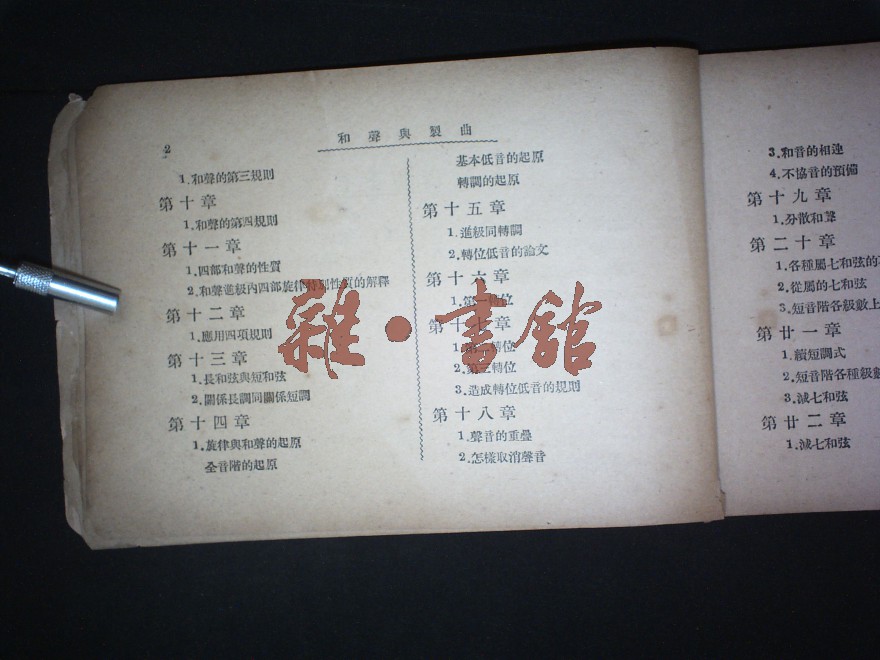 2
和聲與製曲
1.和聲的第三規則
第十章
1.和聲的第四規則
第十一章
1.四部和聲的性質
2.和聲進級內四部旋律特別性質的解釋
第十二章
1.應用四項規則
第十三章
1.長和弦與短和弦
2.關係長調同關係短調
第十四章
1.旋律與和聲的起原
全音階的起原
基本低音的起原
轉調的起原
第十五章
1.進級同轉調
2.轉位低音的論文
第十六章
1.第一轉位
第十七章
1.第二轉位
2.第三轉位
3.造成轉位低音的規則
第十八章
1.聲音的重疊
2.怎樣取消聲音
3.和音的相連
4.不協音的預備
第十九章
1.分散和聲
第二十章
1.各種屬七和弦的
2.從屬的七和弦
3.短音階各級數上
第廿一章
1.續短調式
2.短音階各種級數
3.減七和弦
第廿二章
1.減七和弦
雜·書館